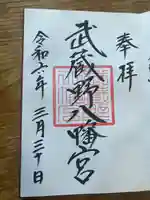 奉拝
武蔵野八幡宮
令和六年三月三十日